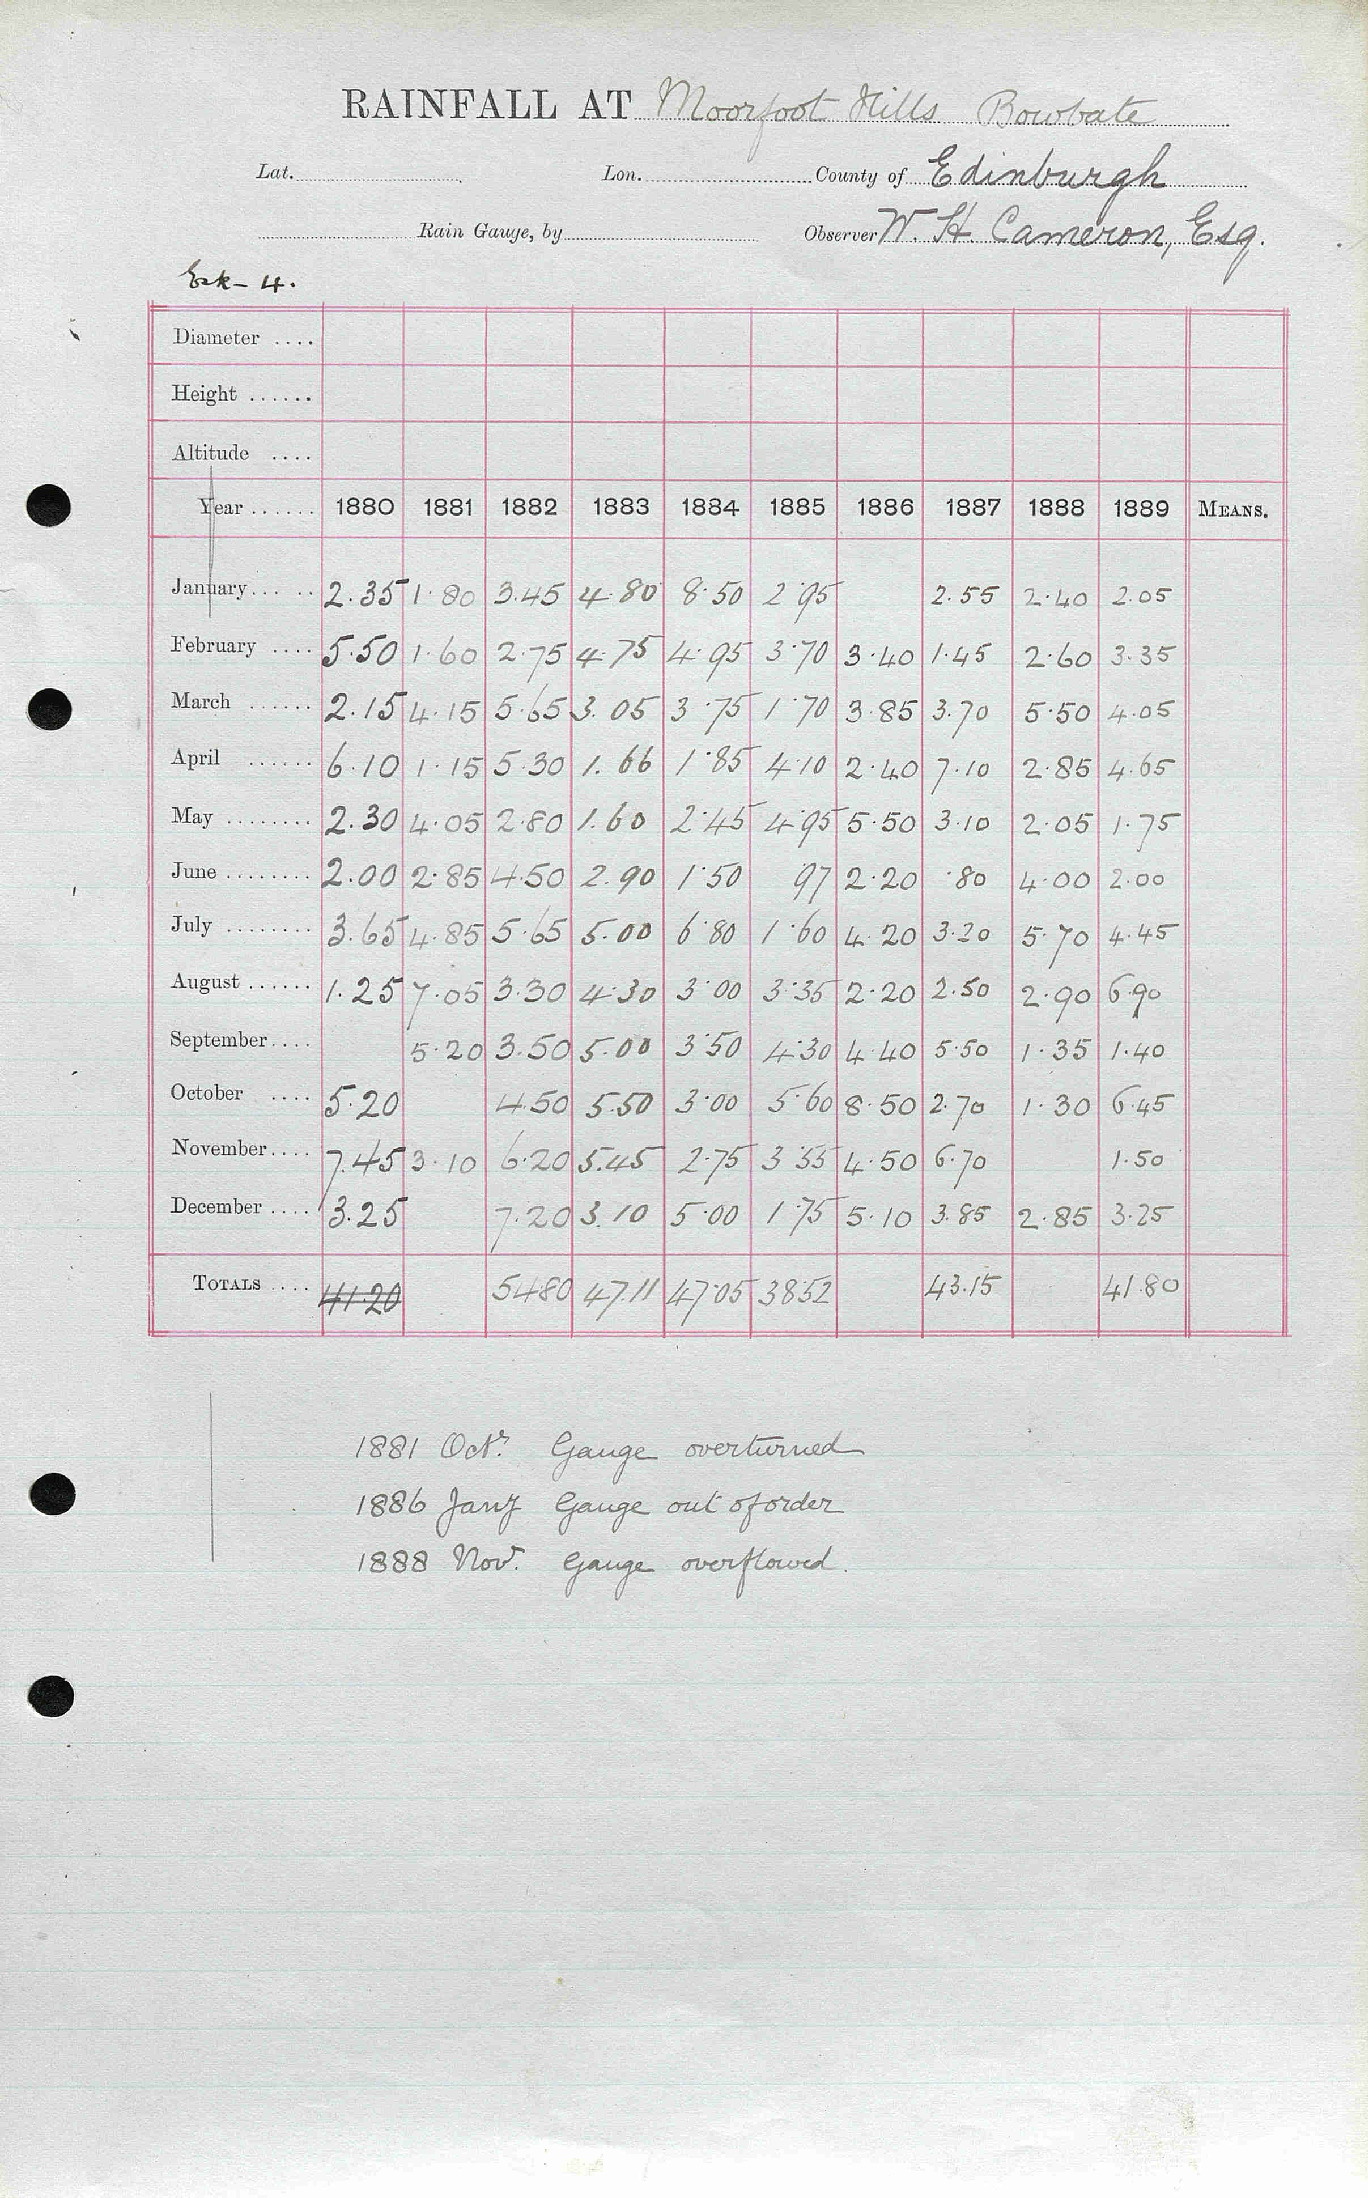 RAINFALL AT Moorfoot Hills Bowbate
Lat. Lon. County of Edinburgh
Rain Gauge, by Observer W. H. Cameron, Esq.
Esk - 4.
Diameter ....
Height ......
Altitude ....
Year ...... 1880 1881 1882 1883 1884 1885 1886 1887 1888 1889 MEANS.
January... .. 2.35 1.80 3.45 4.80 8.50 2.95 2.55 2.40 2.05
February .... 5.50 1.60 2.75 4.75 4.95 3.70 3.40 1.45 2.60 3.35
March ...... 2.15 4.15 5.65 3.05 3.75 1.70 3.85 3.70 5.50 4.05
April ...... 6.10 1.15 5.30 1.66 1.85 4.10 2.40 7.10 2.85 4.65
May ........ 2.30 4.05 2.80 1.60 2.45 4.95 5.50 3.10 2.05 1.75
June ........ 2.00 2.85 4.50 2.90 1.50 97 2.20 .80 4.00 2.00
July ........ 3.65 4.85 5.65 5.00 6.80 1.60 4.20 3.20 5.70 4.45
August ...... 1.25 7.05 3.30 4.30 3.00 3.35 2.20 2.50 2.90 6.90
September.... 5.20 3.50 5.00 3.50 4.30 4.40 5.50 1.35 1.40
October .... 5.20 4.50 5.50 3.00 5.60 8.50 2.70 1.30 6.45
November.... 7.45 3.10 6.20 5.45 2.75 3.55 4.50 6.70 1.50
December .... 3.25 7.20 3.10 5.00 1.75 5.10 3.85 2.85 3.25
TOTALS .... 41.20 54.80 47.11 47.05 38.52 43.15 41.80
1881 Octr. Gauge overturned
1886 Jany Gauge out of order
1888 Novr. Gauge overflowed.